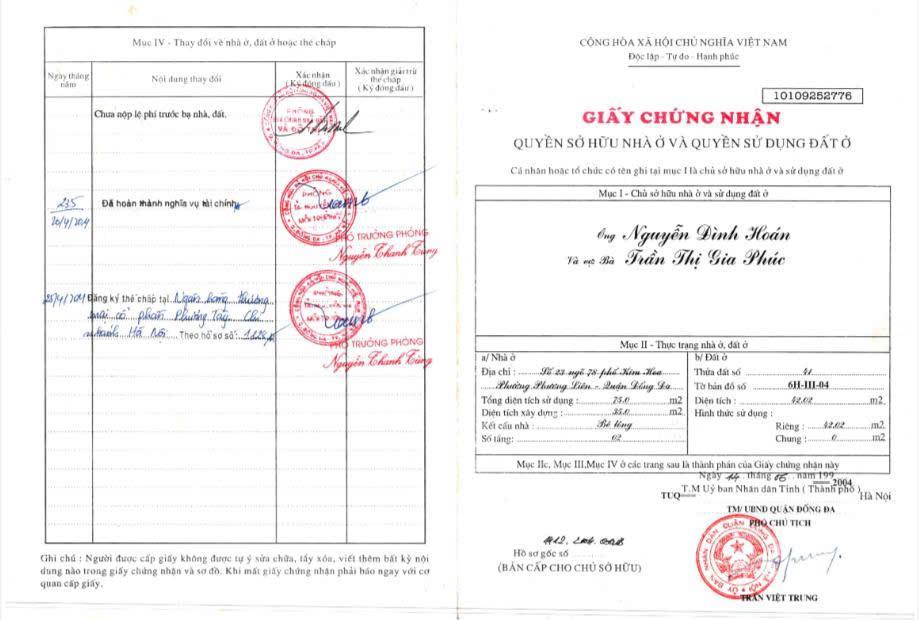 Mục IV - Thay đổi về nhà ở, đất ở hoặc thế chấp
Ngày tháng năm
Nội dung thay đổi
Xác nhận
(Ký đóng dấu)
Xác nhận giải trừ thế chấp
(Ký đóng dấu)
Chưa nộp lệ phí trước bạ nhà, đất.
235
Đã hoàn thành nghĩa vụ tài chính
PHÓ TRƯỞNG PHÒNG
Nguyễn Thanh Tùng
Đăng ký thế chấp tại Ngân hàng thương
mại cổ phần Phương Tây Chi
nhánh Hà Nội Theo hồ sơ số
PHÓ TRƯỞNG PHÒNG
Nguyễn Thanh Tùng
Ghi chú : Người được cấp giấy không được tự ý sửa chữa, tẩy xóa, viết thêm bất kỳ nội
dung nào trong giấy chứng nhận và sơ đồ. Khi mất giấy chứng nhận phải báo ngay với cơ
quan cấp giấy.
CỘNG HÒA XÃ HỘI CHỦ NGHĨA VIỆT NAM
Độc lập - Tự do - Hạnh phúc
10109252776
GIẤY CHỨNG NHẬN
QUYỀN SỞ HỮU NHÀ Ở VÀ QUYỀN SỬ DỤNG ĐẤT Ở
Cá nhân hoặc tổ chức có tên ghi tại mục I là chủ sở hữu nhà ở và sử dụng đất ở
Mục I - Chủ sở hữu nhà ở và sử dụng đất ở
Ông Nguyễn Đình Hoán
Và vợ Bà Trần Thị Gia Phúc
Mục II - Thực trạng nhà ở, đất ở
a/ Nhà ở
Địa chỉ : Số 23 ngõ 78 phố Kim Hoa
Phường Phương Liên - Quận Đống Đa
Tổng diện tích sử dụng : 75.0 m2
Diện tích xây dựng : 35.0 m2
Kết cấu nhà : Bê tông
Số tầng: 02
b/ Đất ở
Thửa đất số 41
Tờ bản đồ số 6H-III-04
Diện tích : 42.02 m2
Hình thức sử dụng :
Riêng : 42.02 m2
Chung : 0 m2
Mục IIc, Mục III,Mục IV ở các trang sau là thành phần của Giấy chứng nhận này
Ngày 14 tháng 05 năm 199 2004
TUQ T.M Uỷ ban Nhân dân Tỉnh ( Thành phố ) Hà Nội
TM/ UBND QUẬN ĐỐNG ĐA
PHÓ CHỦ TỊCH
Hồ sơ gốc số
(BẢN CẤP CHO CHỦ SỞ HỮU)
TRẦN VIỆT TRUNG